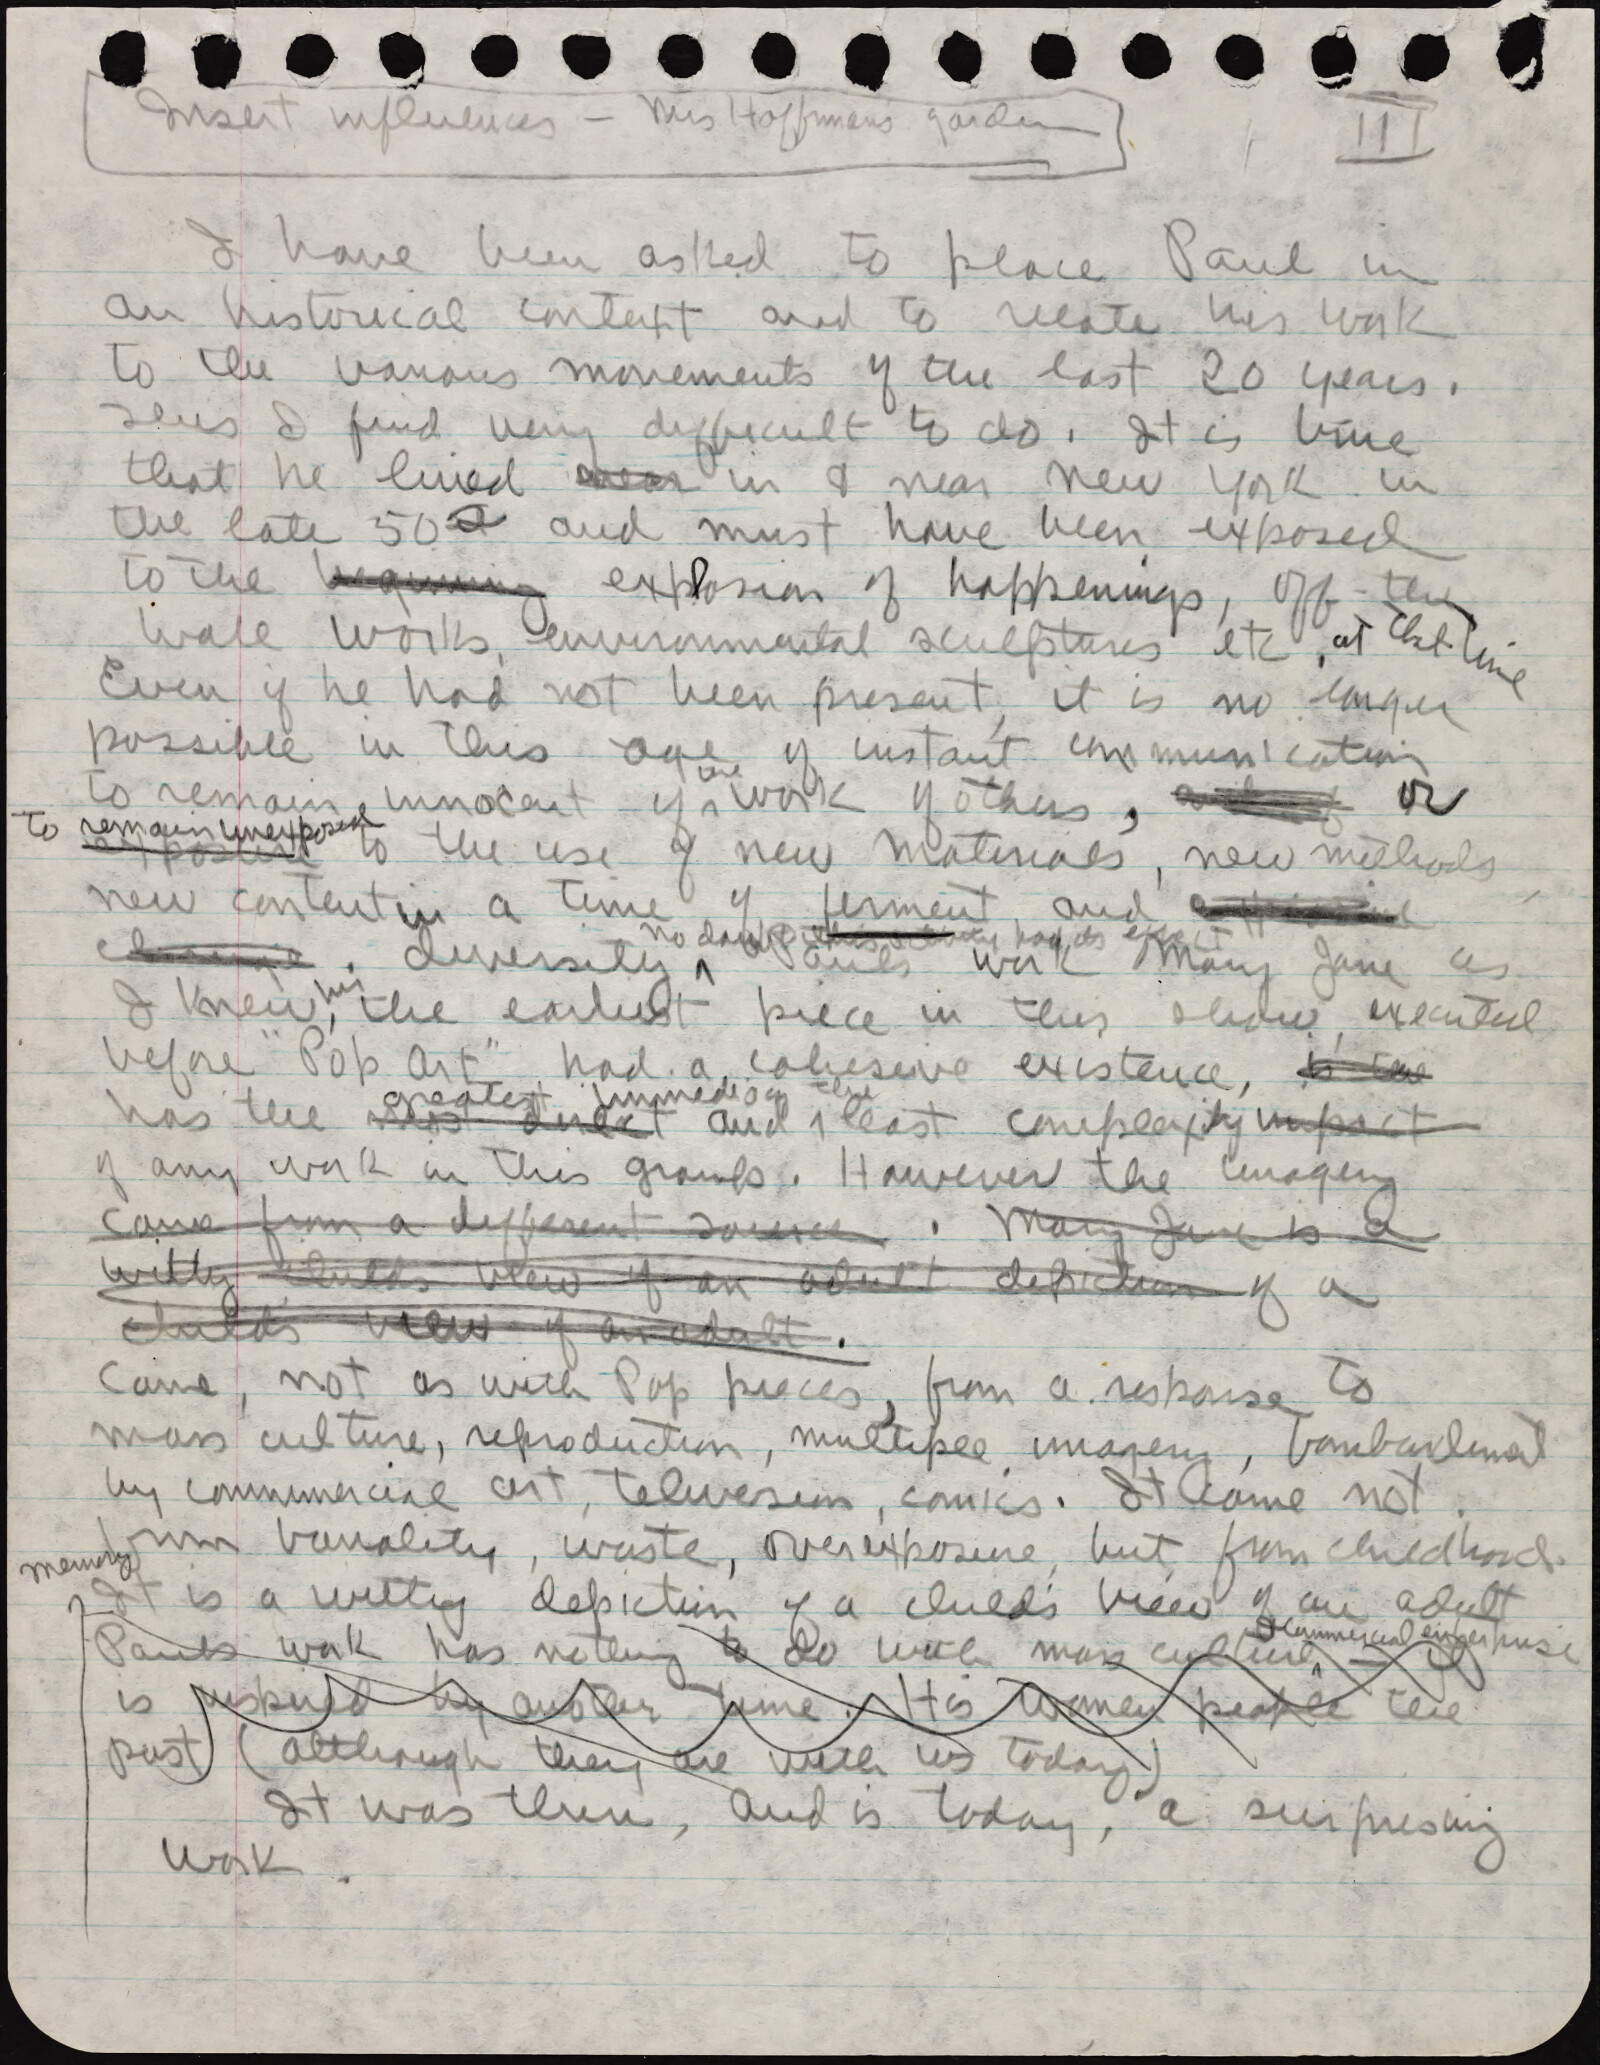 Insert influences – Mrs Hoffman's garden
III
I have been asked to place Paul in
an historical context and to relate his work
to the various movements of the last 20 years.
This I find very difficult to do. It is true
that he lived near in & near New York in
the late 50s and must have been exposed
to the beginning explosion of happenings, off-the
wall works, environmental sculptures etc, at that time
Even if he had not been present, it is no longer
possible in this age of instant communication
to remain innocent of the work of others, or
to remain unexposed
exposure to the use of new materials, new methods,
new content in a time of ferment, and
change. diversity no doubt this activity had its effect
Paul's work Mary Jane as
I knew him, the earliest piece in this show, executed
before "Pop Art" had a cohesive existence, is the
has the most direct greatest immediacy and the least complexity impact
of any work in this group. However the imagery
came from a different source. Mary Jane is a
witty childs view of an adult depiction of a
child's view of an adult.
came, not as with Pop pieces, from a response to
mass culture, reproduction, multiple imagery, bombardment
by commumercial art, television, comics. It came not
from banality, waste, overexposure, but from childhood.
memory
It is a witty depiction of a child's view of an adult
Pauls work has nothing to do with mass culture & commercial enterprise – it
is inspired by another time. His women people the
past (although they are with us today)
It was then, and is today, a surprising
work.